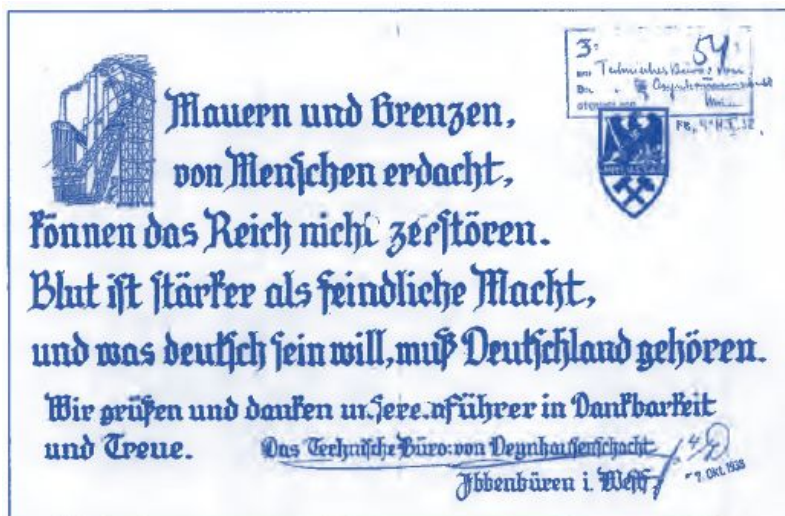 54
3:
Technisches Büro: von
Mauern und Grenzen,
von Menschen erdacht,
können das Reich nicht zerstören.
Blut ist stärker als feindliche Macht,
und was deutsch sein will, muß Deutschland gehören.
Wir grüßen und danken unserem Führer in Dankbarkeit
und Treue.
Das Technische Büro: von Oeynhausenschacht
Ibbenbüren i. Westf.
7. Okt. 1938